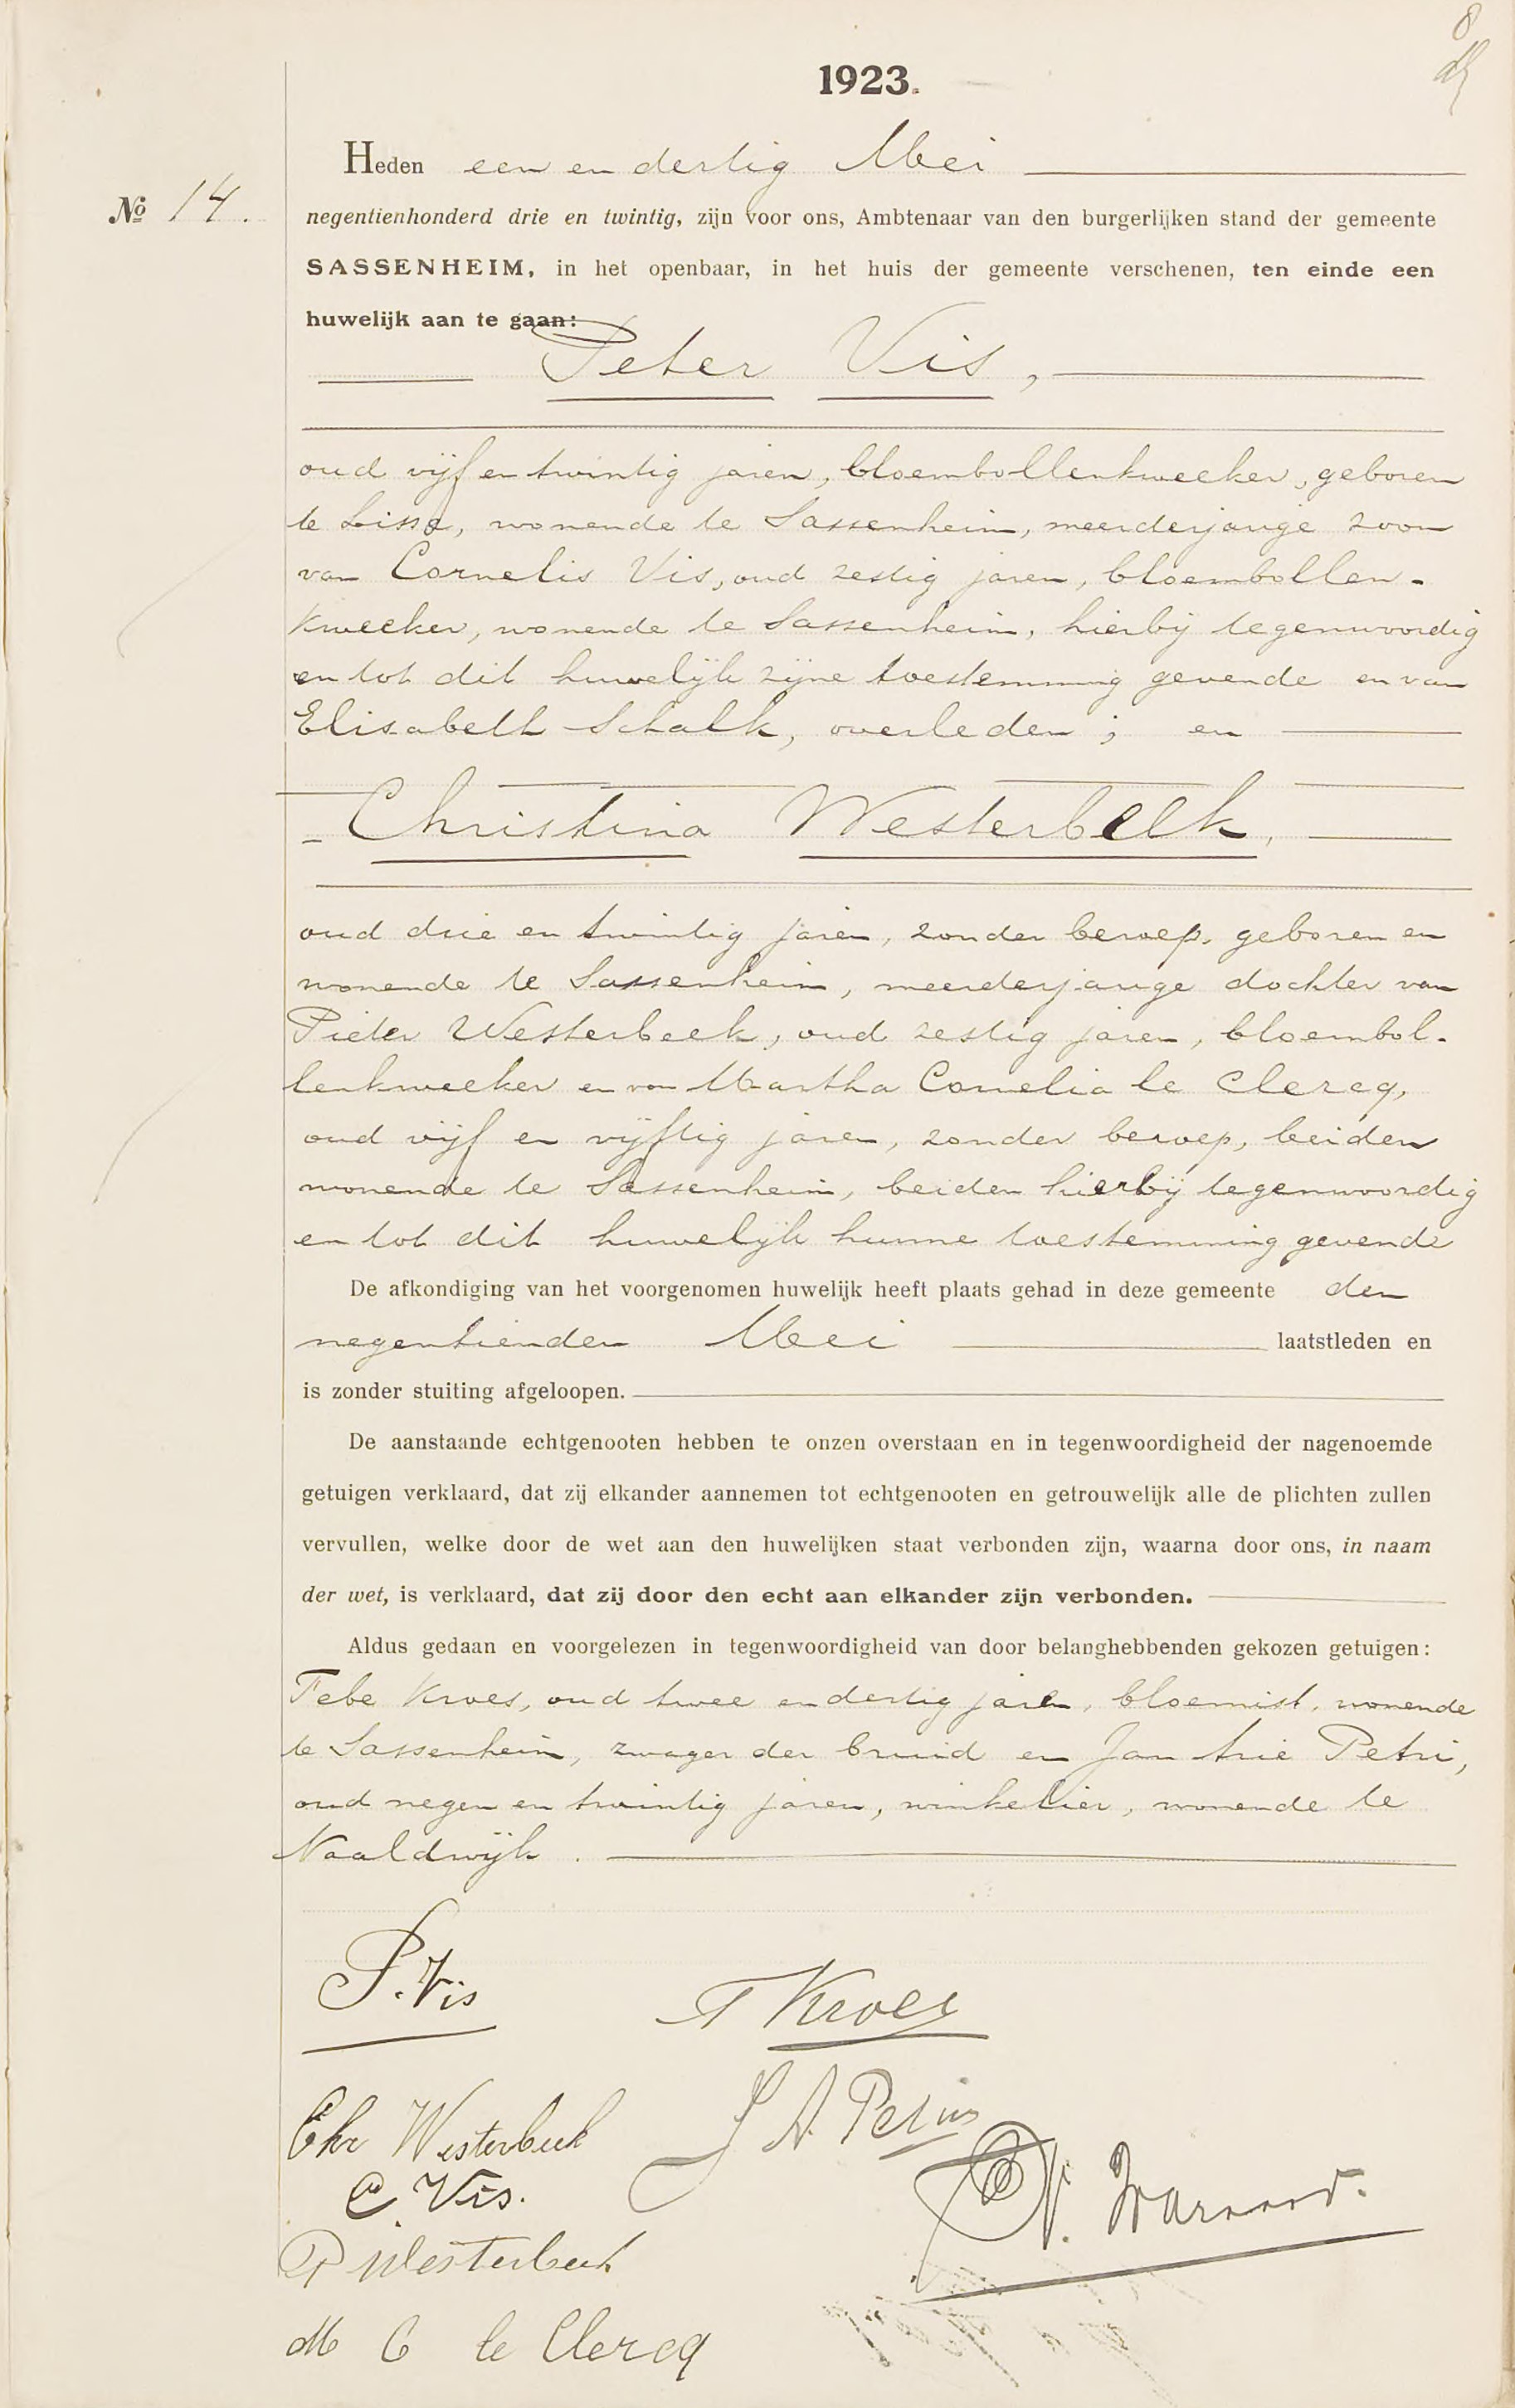 8
1923.
Heden een en dertig Mei
No 14.
negentienhonderd drie en twintig, zijn voor ons, Ambtenaar van den burgerlijken stand der gemeente
SASSENHEIM, in het openbaar, in het huis der gemeente verschenen, ten einde een
huwelijk aan te gaan:
Peter Vis,
oud vijf en twintig jaren, bloembollenkweeker, geboren
te Lisse, wonende te Sassenheim, meerderjarige zoon
van Cornelis Vis, oud zestig jaren, bloembollen-
kweeker, wonende te Sassenheim, hierbij tegenwoordig
en tot dit huwelijk zijne toestemming gevende en van
Elisabeth Schalk, overleden; en
Christina Westerbeek,
oud drie en twintig jaren, zonder beroep, geboren en
wonende te Sassenheim, meerderjarige dochter van
Pieter Westerbeek, oud zestig jaren, bloembol-
lenkweeker en van Martha Cornelia le Clercq,
oud vijf en vijftig jaren, zonder beroep, beiden
wonende te Sassenheim, beiden hierbij tegenwoordig
en tot dit huwelijk hunne toestemming gevende
De afkondiging van het voorgenomen huwelijk heeft plaats gehad in deze gemeente den
negentienden Mei laatstleden en
is zonder stuiting afgeloopen.
De aanstaande echtgenooten hebben te onzen overstaan en in tegenwoordigheid der nagenoemde
getuigen verklaard, dat zij elkander aannemen tot echtgenooten en getrouwelijk alle de plichten zullen
vervullen, welke door de wet aan den huwelijken staat verbonden zijn, waarna door ons, in naam
der wet, is verklaard, dat zij door den echt aan elkander zijn verbonden.
Aldus gedaan en voorgelezen in tegenwoordigheid van door belanghebbenden gekozen getuigen:
Febe Kroes, oud twee en dertig jaren, bloemist, wonende
te Sassenheim, zwager der bruid en Jan Arie Petri,
oud negen en twintig jaren, winkelier, wonende te
Naaldwijk.
P. Vis
F Kroes
Chr Westerbeek
J A. Petri
C. Vis.
P Westerbeek
M C le Clercq